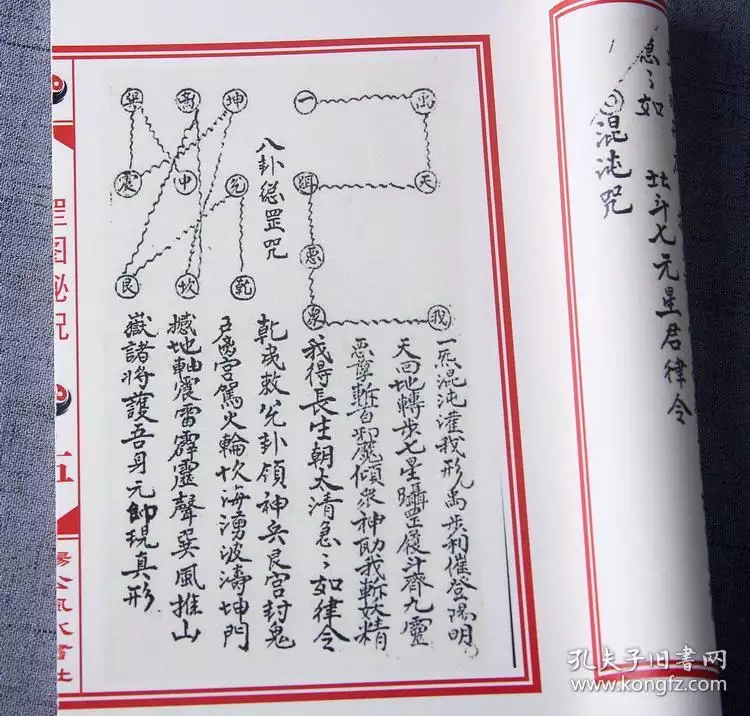 急〻如 北斗七元星君律令
混沌咒
禹
一
天
惡
眾
我
一炁混沌灌我形禹步利催登陽明
天回地轉步七星躡罡履斗齊九靈
斬首邪魔傾眾神助我斬妖精
我得長生朝太清急〻如律令
八卦總罡咒
坤
离
巽
中
震
兌
乾
坎
艮
兌卦領神兵艮宮封鬼
宮駕火輪坎海湧波濤坤門
撼地軸震雷霹靂聲巽風推山
嶽諸將護吾身元帥現真形
罡图秘咒
五
孔夫子旧书网
www.kongfz.com